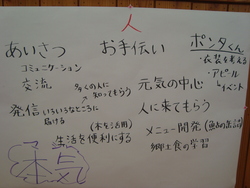 人
あいさつ
コミュニケーション
交流
多くの人に知ってもらう
発信
いろいろなところに
届ける
(本を活用)
生活を便利にする
本気
お手伝い
元気の中心
人に来てもらう
メニュー開発
郷土食の学習
ポンタくん
・衣装を考える
・アピール
イベント